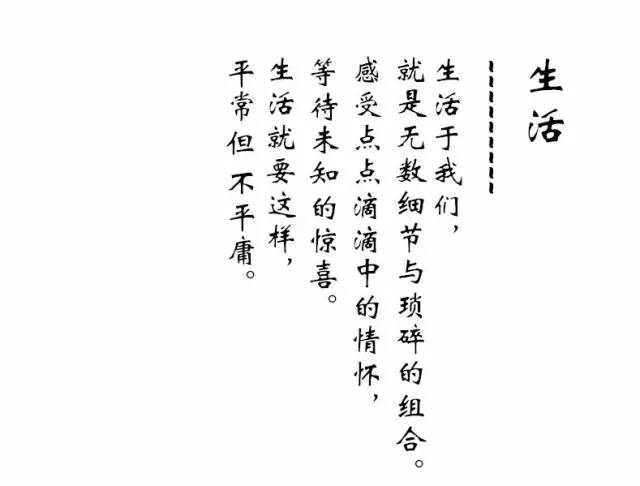 生活
生活于我们，
就是无数细节与琐碎的组合。
感受点点滴滴中的情怀，
等待未知的惊喜。
生活就要这样，
平常但不平庸。